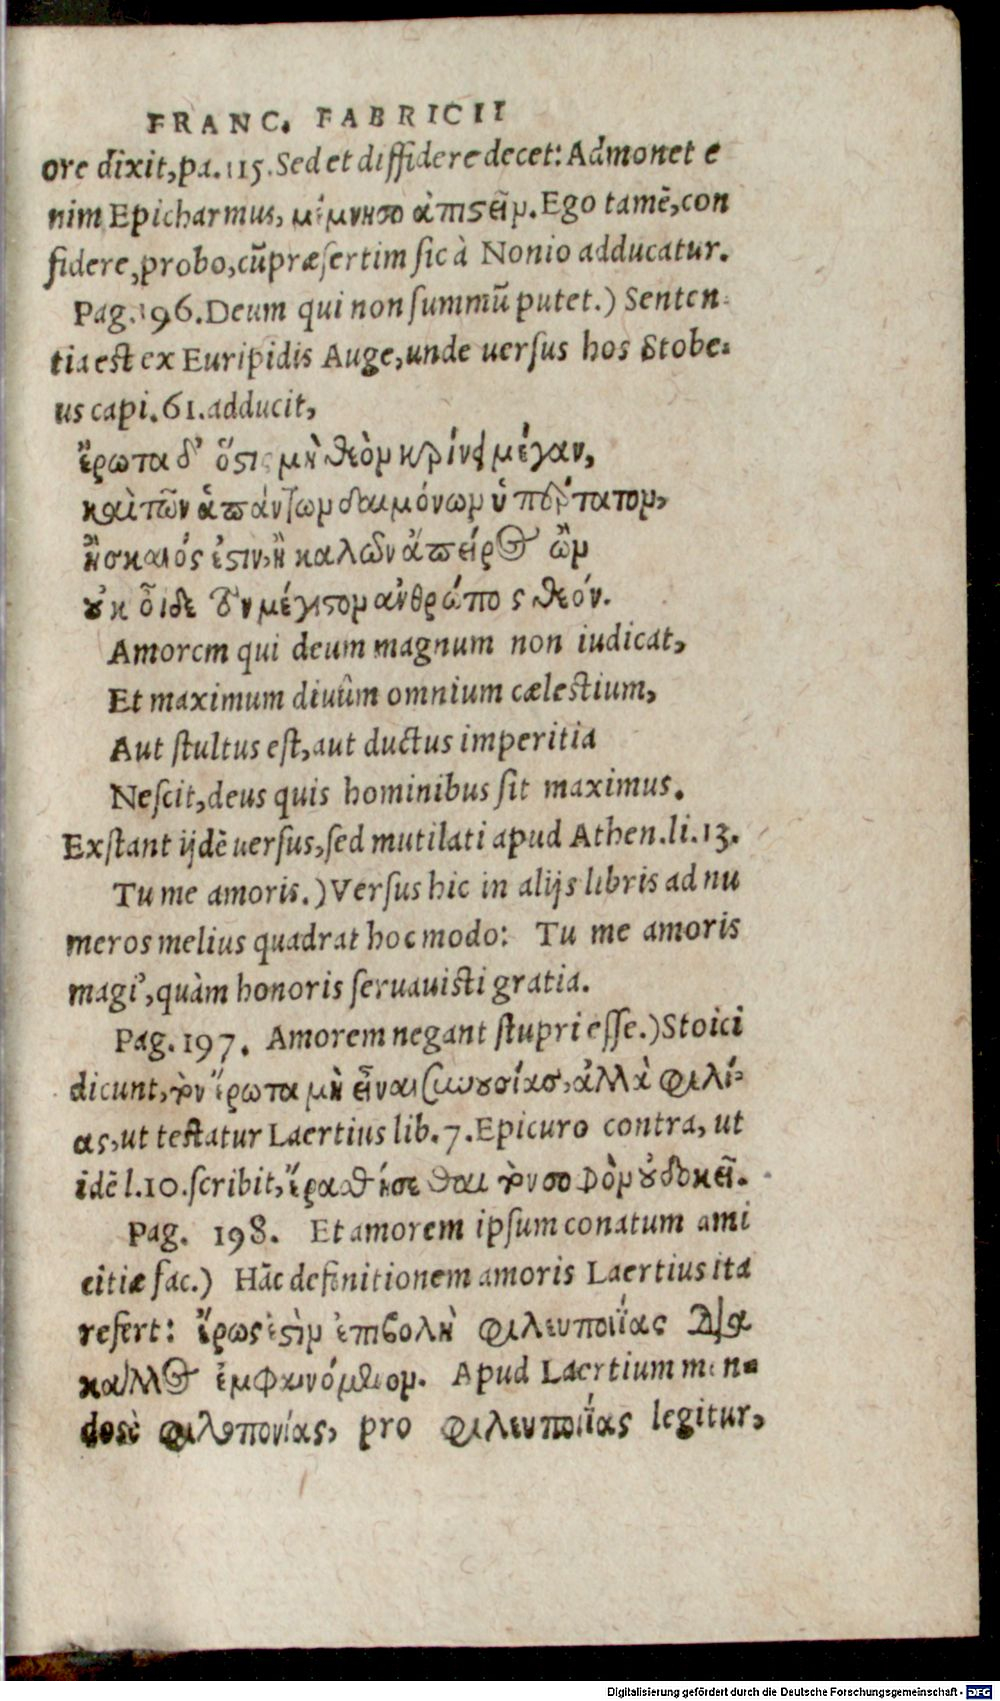 FRANC. FABRICII
ore dixit, pa. 115. Sed et diffidere decet: Admonet e
nim Epicharmus, μέμνησο ἀπιστεῖν. Ego tamē, con
fidere, probo, cū præsertim sic à Nonio adducatur.
Pag. 196. Deum qui non summū putet.) Senten-
tia est ex Euripidis Auge, unde uersus hos Stobe-
us capi. 61. adducit,
ἔρωτα δ' ὅστις μὴ θεὸν κρίνει μέγαν,
καὶ τῶν ἁπάντων δαιμόνων ὑπέρτατον,
ἢ σκαιός ἐστιν, ἢ καλῶν ἄπειρος ὢν
οὐκ οἶδε τὸν μέγιστον ἀνθρώποις θεόν.
Amorem qui deum magnum non iudicat,
Et maximum diuûm omnium cælestium,
Aut stultus est, aut ductus imperitia
Nescit, deus quis hominibus sit maximus.
Exstant ijdē uersus, sed mutilati apud Athen. li. 13.
Tu me amoris.) Versus hic in alijs libris ad nu
meros melius quadrat hoc modo: Tu me amoris
magi', quàm honoris seruauisti gratia.
Pag. 197. Amorem negant stupri esse.) Stoici
dicunt, τὸν ἔρωτα μὴ εἶναι συνουσίας, ἀλλὰ φιλί-
ας, ut testatur Laertius lib. 7. Epicuro contra, ut
idē l. 10. scribit, ἐρασθήσεσθαι τὸν σοφὸν οὐ δοκεῖ.
Pag. 198. Et amorem ipsum conatum ami
citiæ fac.) Hāc definitionem amoris Laertius ita
refert: ἔρως ἐστὶν ἐπιβολὴ φιλευποιΐας διὰ
κάλλος ἐμφαινόμενον. Apud Laertium men-
dosè φιλοπονίας, pro φιλευποιΐας legitur,
Digitalisierung gefördert durch die Deutsche Forschungsgemeinschaft - DFG